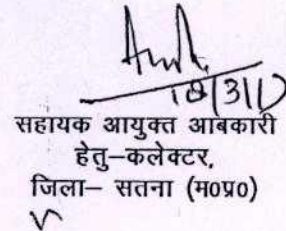 सहायक आयुक्त आबकारी
हेतु–कलेक्टर,
जिला– सतना (म०प्र०)